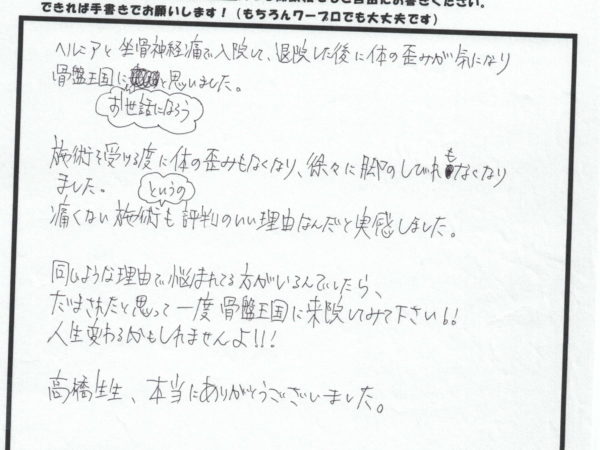 できれば手書きでお願いします！（もちろんワープロでも大丈夫です）
ヘルニアと坐骨神経痛で入院して、退院した後に体の歪みが気になり
骨盤王国にと思いました。
お世話になろう
施術を受ける度に体の歪みもなくなり、徐々に脚のしびれもなくなり
ました。
というの
痛くない施術も評判のいい理由なんだと実感しました。
同じような理由で悩まれてる方がいるんでしたら、
だまされたと思って一度骨盤王国に来院してみて下さい！！
人生変わるかもしれませんよ！！！
高橋先生、本当にありがとうございました。